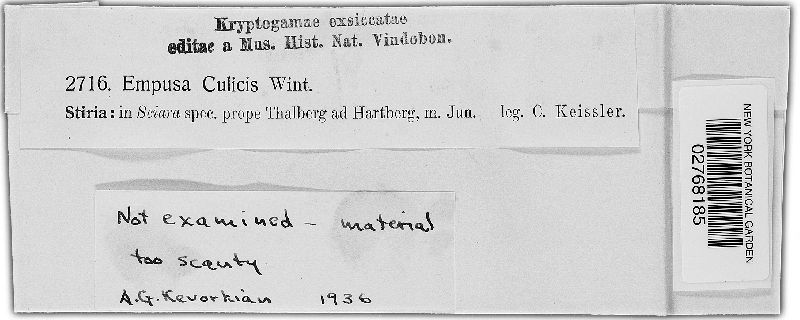 Kryptogamae exsiccatae
editae a Mus. Hist. Nat. Vindobon.
2716. Empusa Culicis Wint.
Stiria: in Sciara spec. prope Thalberg ad Hartberg, m. Jun. leg. C. Keissler.
Not examined – material
too scanty
A.G. Kevorkian 1936
NEW YORK BOTANICAL GARDEN
02768185